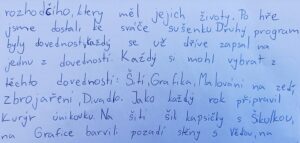 rozhodčího, který měl jejich životy. Po hře
jsme dostali ke sváče sušenku. Druhý program
byly dovednosti, každý se už dříve zapsal na
jednu z dovedností. Každý si mohl vybrat z
těchto dovedností: Šití, Grafika, Malování na zeď,
zbrojaření, Divadlo. Jako každý rok připravil
Kurýr únikovku. Na šití šil kapsičky s Školkou,
na Grafice barvili pozadí stěny s Věďou, na